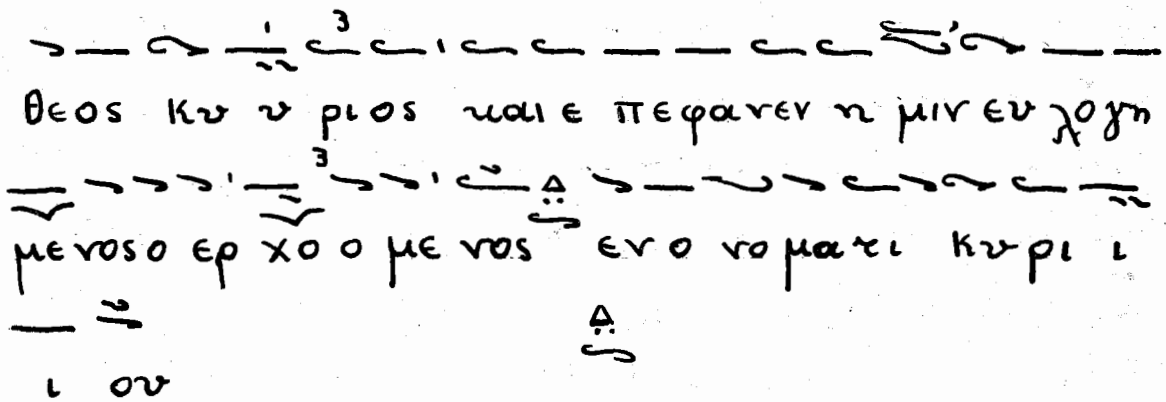 θεος κυ υ ριος και ε πεφανεν η μιν ευ λο γη
μενοσο ερ χο ο με νος εν ο νο ματι κυ ρι ι
ι ου